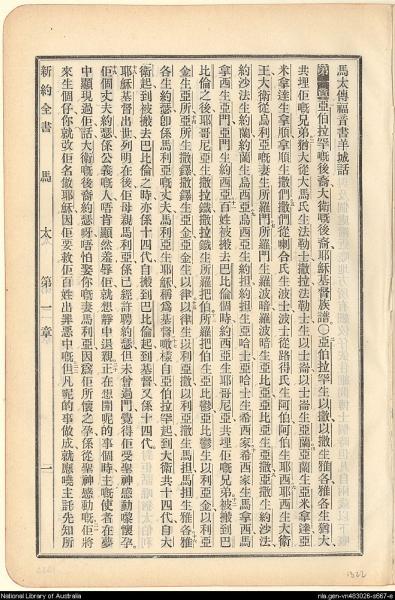 馬太傳福音書羊城話
第一章亞伯拉罕嘅後裔大衛嘅後裔耶穌基督族譜○亞伯拉罕生以撒以撒生雅各雅各生猶大
共埋佢嘅兄弟猶大從大馬氏生法勒士共謝拉法勒士生以士崙以士崙生亞蘭亞蘭生亞米拿達亞
米拿達生拿順拿順生撒們撒們從喇合氏生波士波士從路得氏生阿伯阿伯生耶西耶西生大衛
王大衛從烏利亞嘅妻生所羅門所羅門生羅波暗羅波暗生亞比亞亞比亞生亞撒亞撒生約沙法
約沙法生約蘭約蘭生烏西亞烏西亞生約担約担生亞哈士亞哈士生希西家希西家生馬拿西馬
拿西生亞們亞們生約西亞百姓被搬去巴比倫個時約西亞生耶哥尼亞共埋佢嘅兄弟被搬到巴
比倫之後耶哥尼亞生撒拉鐵撒拉鐵生所羅把伯所羅把伯生亞比鬱亞比鬱生以利亞金以利亞
金生亞所亞所生撒鐸撒鐸生亞金亞金生以律以律生以利亞撒以利亞撒生馬担馬担生雅各雅
各生約瑟卽係馬利亞嘅丈夫馬利亞生耶穌稱爲基督噉樣自亞伯拉罕起到大衛共十四代自大
衛起到被搬去巴比倫之時亦係十四代自搬到巴比倫起到基督又係十四代
耶穌基督出世列明在後佢母親馬利亞係已經許聘約瑟但未曾過門覺得佢受聖神感動嚟懷孕
佢個丈夫約瑟係公義嘅人唔肯顯然羞辱佢就想靜中退親正在想開呢的事個時主嘅使者在夢
中顯現過佢話大衛嘅後裔約瑟呀唔怕娶你嘅妻馬利亞因爲佢所懷之孕係從聖神感動嘅佢將
來生個仔你就改佢名做耶穌因佢要救佢百姓出罪惡中嘅但凡呢的事做成就應嘵主託先知所
新約全書
馬太
第一章
一
National Library of Australia
nla.gen-vn483026-s667-e